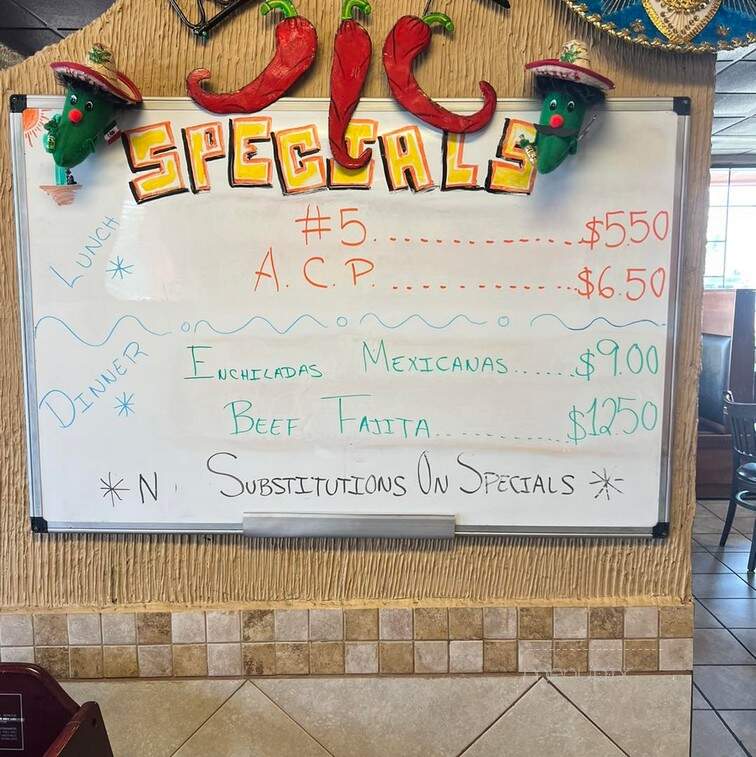 SPECIALS
LUNCH *
#5.............$5.50
A.C.P...............$6.50
DINNER *
ENCHILADAS MEXICANAS......$9.00
BEEF FAJITA..............$12.50
*N SUBSTITUTIONS ON SPECIALS *